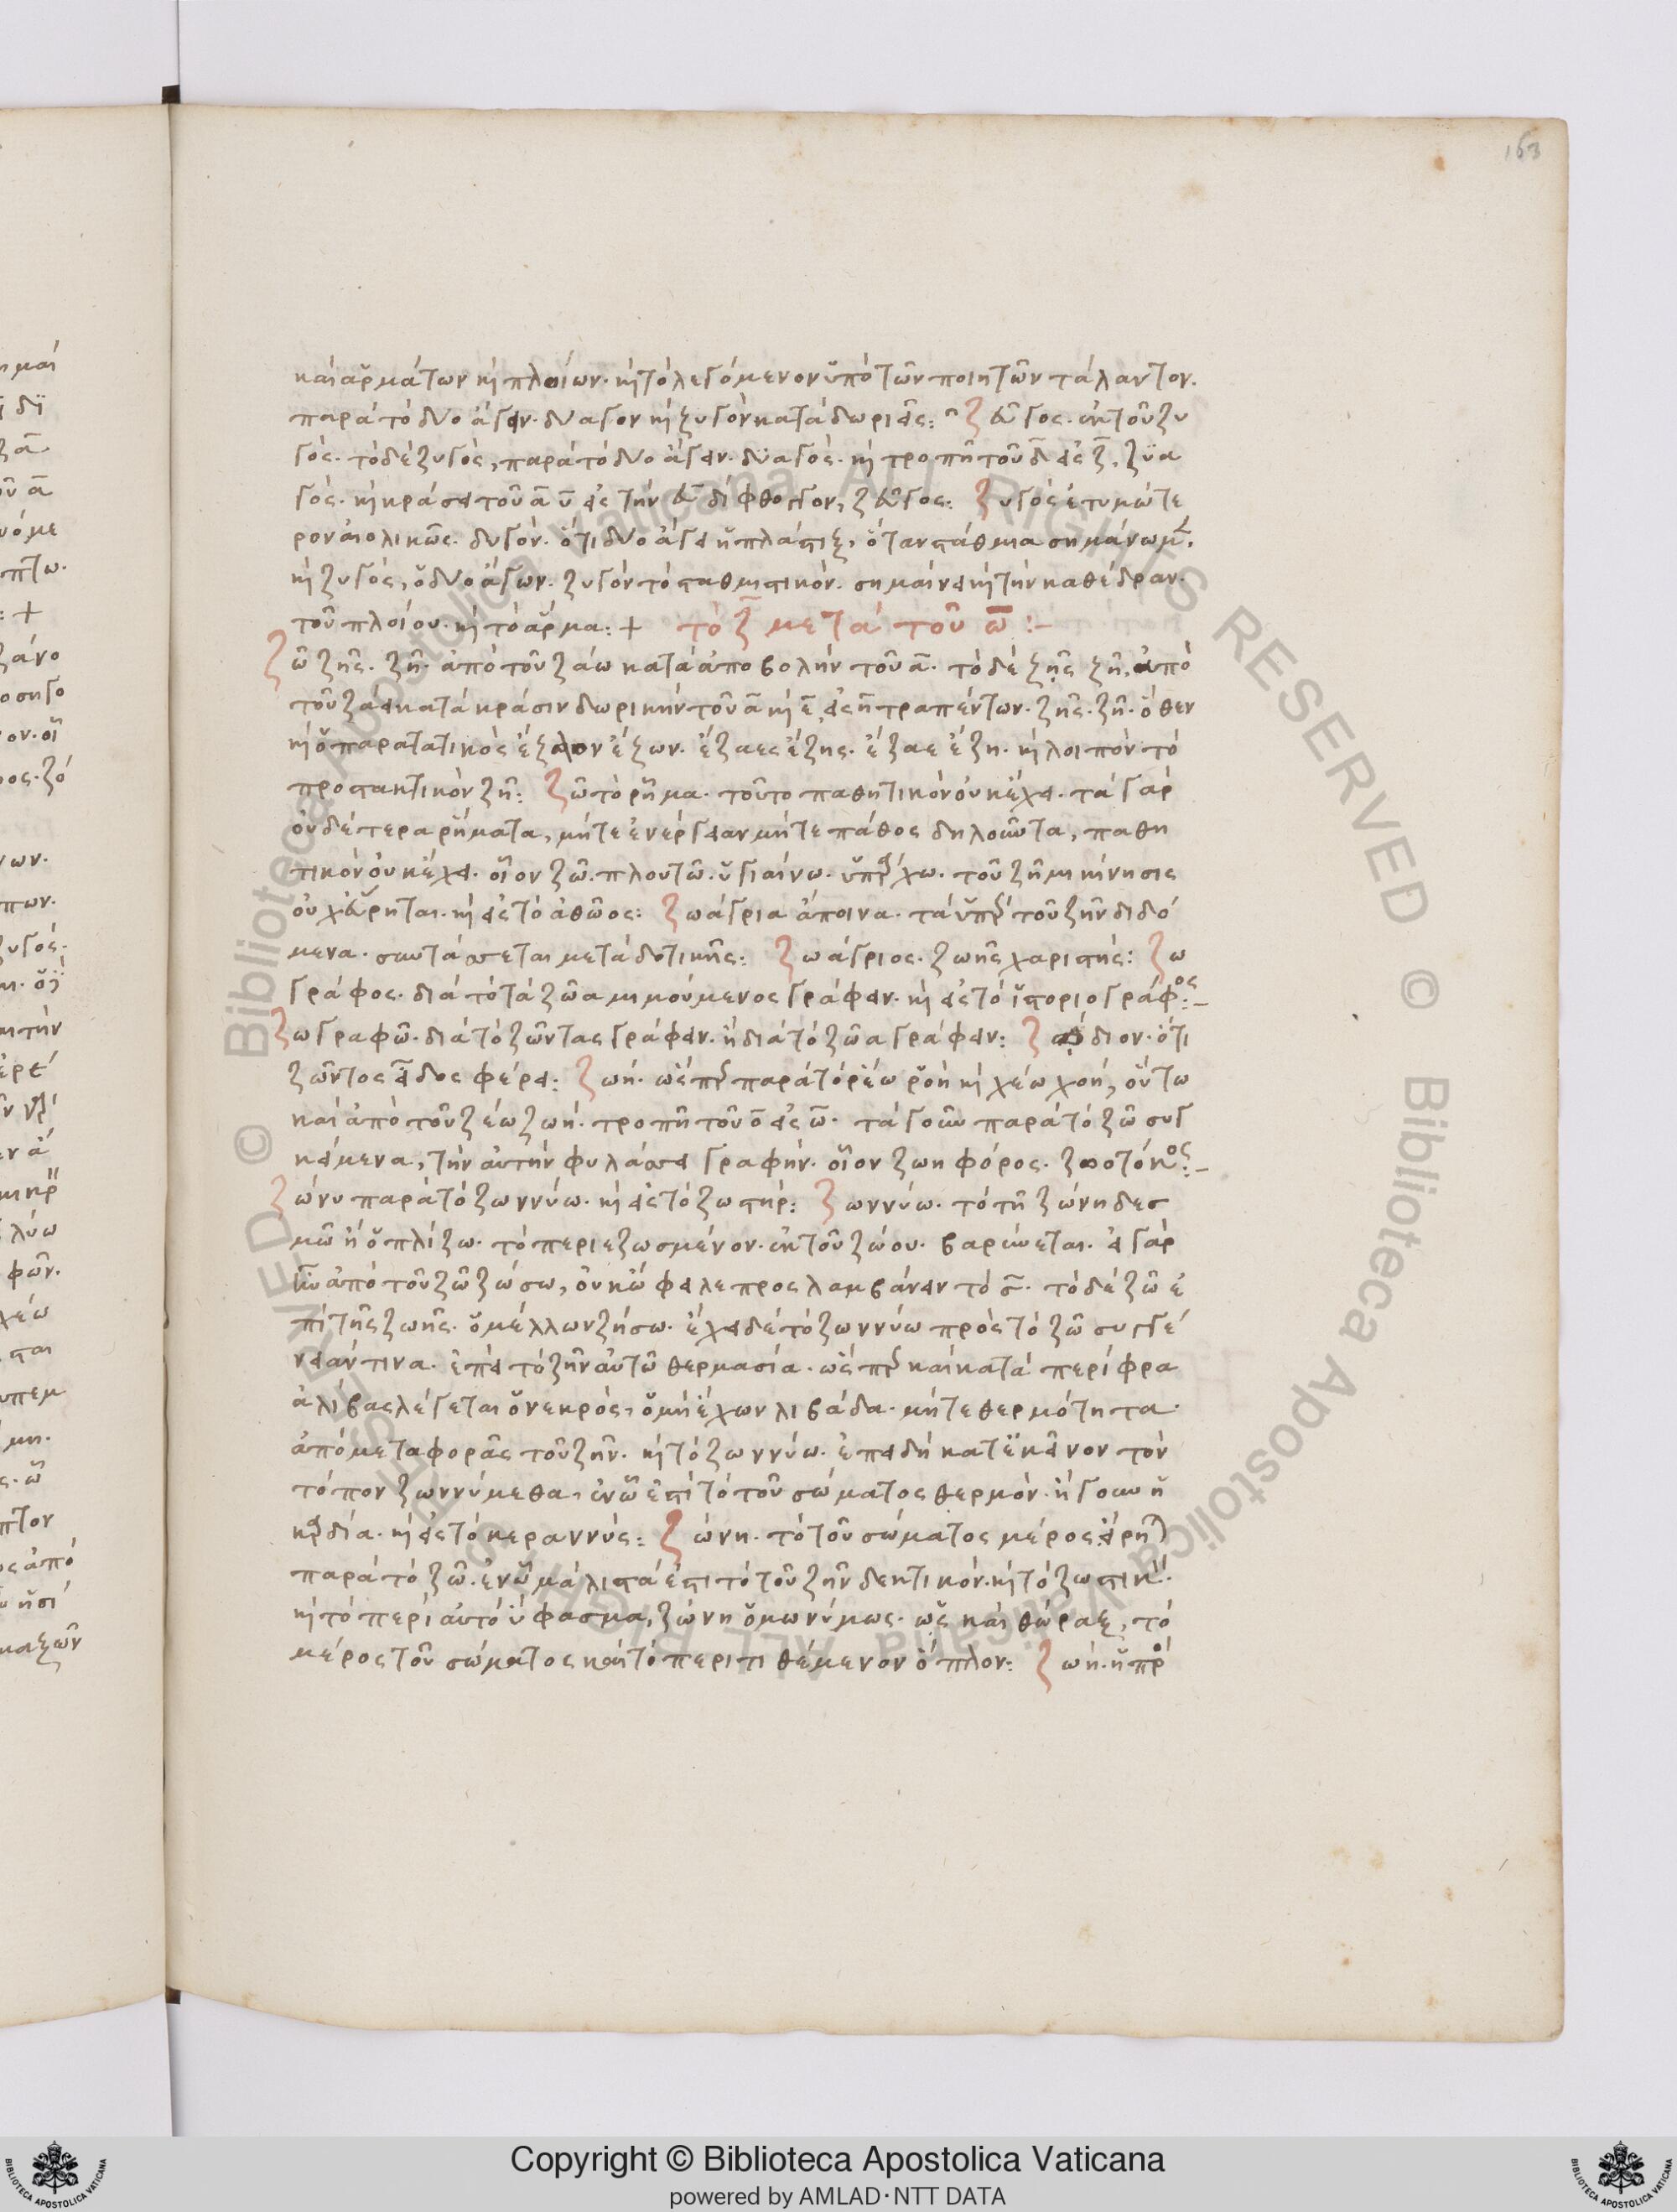 163
καὶ ἁρμάτων καὶ πλοίων· καὶ τὸ λεγόμενον ὑπὸ τῶν ποιητῶν τάλαντον·
παρὰ τὸ δύο ἄγειν· δυαγὸν καὶ ζυγὸν κατὰ δωριεῖς: ζεῦγος· ἐκ τοῦ ζυ
γός· τὸ δὲ ζυγὸς, παρὰ τὸ δύο ἄγειν· δυαγός· καὶ τροπῇ τοῦ δ εἰς ζ, ζυα
γός· καὶ κράσει τοῦ α υ εἰς τὴν ευ δίφθογγον, ζεῦγος: ζυγὸς ἐτυμώτε
ρον αἰολικῶς· δυγόν· ὅτι δύο ἄγει ἡ πλάστιξ, ὅταν στάθμια σημαίνωμεν·
καὶ ζυγός, ὁ δύο ἄγων· ζυγὸν τὸ σταθμιστικόν· σημαίνει καὶ τὴν καθέδραν·
τοῦ πλοίου· καὶ τὸ ἅρμα: + τὸ ζ μετὰ τοῦ ω :-
ζῶ ζῇς· ζῇ· ἀπὸ τοῦ ζάω κατὰ ἀποβολὴν τοῦ α· τὸ δὲ ζῇς ζῇ, ἀπὸ
τοῦ ζάει κατὰ κράσιν δωρικὴν τοῦ α καὶ ε, εἰς η τραπέντων· ζῇς· ζῇ· ὅθεν
καὶ ὁ παρατατικὸς ἔζαον ἔζων· ἔζαες ἔζης· ἔζαε ἔζη· καὶ λοιπὸν τὸ
προστακτικὸν ζῆ: ζῶ τὸ ῥῆμα· τοῦτο παθητικὸν οὐκ ἔχει· τὰ γὰρ
οὐδέτερα ῥήματα, μήτε ἐνέργειαν μήτε πάθος δηλοῦντα, παθη
τικὸν οὐκ ἔχει· οἷον ζῶ· πλουτῶ· ὑγιαίνω· ὑπάρχω· τοῦ ζῆμι κίνησις
οὐχ εὕρηται· καὶ εἰς τὸ ἀθῶος: ζωάγρια ἄποινα· τὰ ὑπὲρ τοῦ ζῆν διδό
μενα· συντάσσεται μετὰ δοτικῆς: ζωάγριος· ζωῆς χαριστής: ζω
γράφος· διὰ τὸ τὰ ζῶα μιμούμενος γράφειν· καὶ εἰς τὸ ἱστοριογράφος:-
ζωγραφῶ· διὰ τὸ ζῶντας γράφειν· ἢ διὰ τὸ ζῶα γράφειν: ζῴδιον· ὅτι
ζῶντος εἶδος φέρει: ζωή· ὥσπερ παρὰ τὸ ῥέω ῥοὴ καὶ χέω χοή, οὕτω
καὶ ἀπὸ τοῦ ζέω ζωή· τροπῇ τοῦ ο εἰς ω· τὰ γοῦν παρὰ τὸ ζῶ συγ
κείμενα, τὴν αὐτὴν φυλάσσει γραφήν· οἷον ζωηφόρος· ζωοτόκος:-
ζώνυ παρὰ τὸ ζωννύω· καὶ εἰς τὸ ζωστήρ: ζωννύω· τὸ τῇ ζώνῃ δεσ
μῶ ἢ ὁπλίζω· τὸ περιεζωσμένον· ἐκ τοῦ ζώου· βαρύνεται· εἰ γὰρ
ἦν ἀπὸ τοῦ ζῶ ζώσω, οὐκ ὤφειλε προσλαμβάνειν τὸ σ· τὸ δὲ ζῶ ἐ
πὶ τῆς ζωῆς· ὁ μέλλων ζήσω· ἔχει δὲ τὸ ζωννύω πρὸς τὸ ζῶ συγγέ
νειαν τινα· ἐπεὶ τὸ ζῆν αὐτῶ θερμασία· ὥσπερ καὶ κατὰ περίφρα
ἀλίβας λέγεται ὁ νεκρός, ὁ μὴ ἔχων λιβάδα· μήτε θερμότητα·
ἀπὸ μεταφορᾶς τοῦ ζῆν· καὶ τὸ ζωννύω· ἐπειδὴ κατ' ἐκεῖνον τὸν
τόπον ζωννύμεθα, ἐν ᾧ ἐστὶ τὸ τοῦ σώματος θερμόν· ἤγουν ἡ
καρδία· καὶ εἰς τὸ κεραννύς: ζώνη· τὸ τοῦ σώματος μέρος εἴρηται
παρὰ τὸ ζῶ· ἐν ᾧ μάλιστά ἐστι τὸ τοῦ ζῆν δεκτικόν· καὶ τὸ ζωτικόν·
καὶ τὸ περὶ αὐτὸ ὕφασμα, ζώνη ὁμωνύμως· ὡς καὶ θώραξ, τὸ
μέρος τοῦ σώματος καὶ τὸ περιτιθέμενον ὅπλον: ζωή· ἡ πρὸ
Copyright © Biblioteca Apostolica Vaticana
powered by AMLAD·NTT DATA